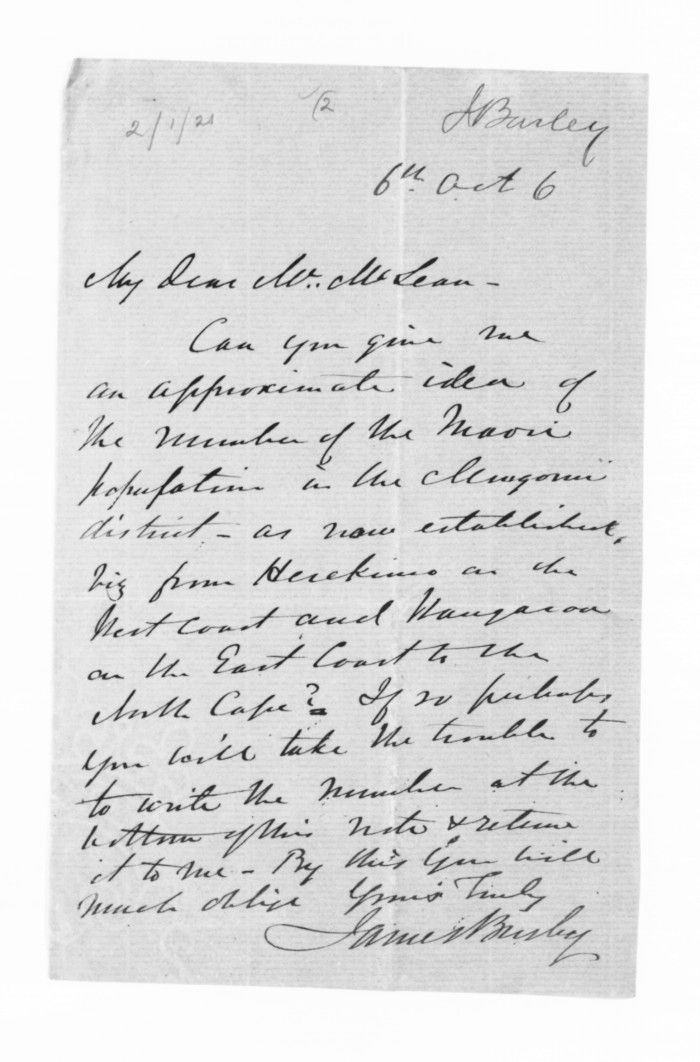 2/1/21
J Busby
6th Oct 6
My Dear Mr. McLean -
Can you give me
an approximate idea of
the number of the Maori
population in the Mungonui
district - as now established,
viz from Herekino on the
West Coast and Wangaroa
on the East Coast to the
North Cape? If so perhaps
you will take the trouble to
to write the number at the
bottom of this note & return
it to me - By this you will
much oblige Yours Truly
James Busby